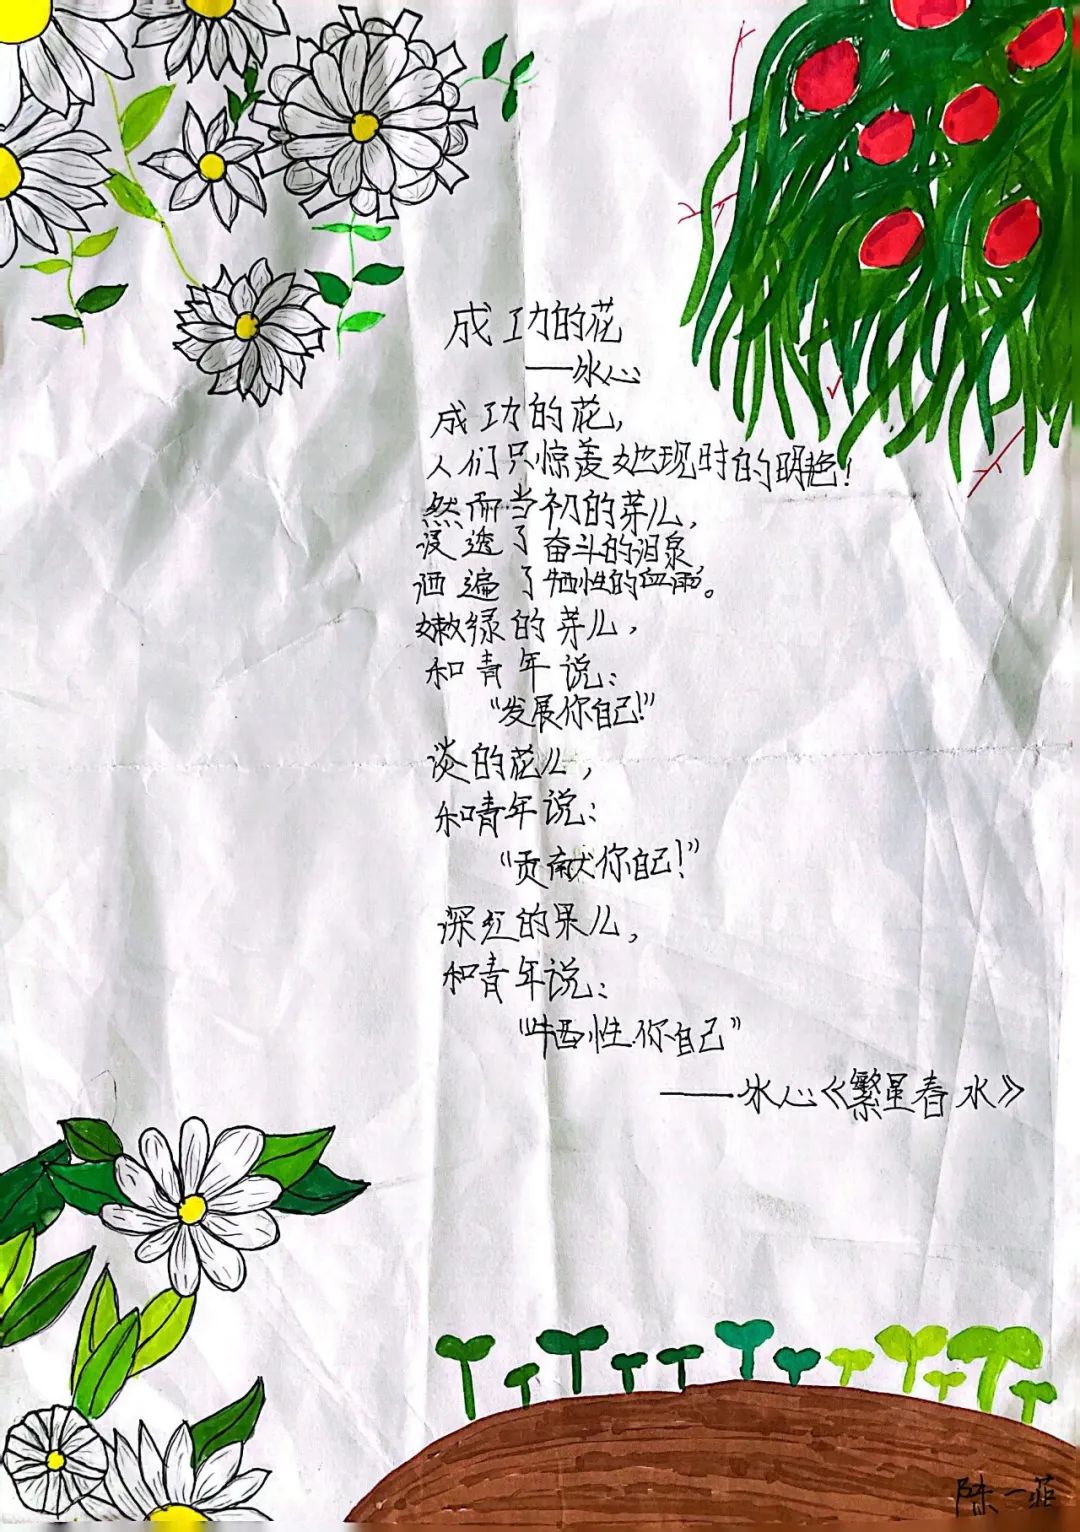 成功的花
——冰心
成功的花，
人们只惊羡她现时的明艳！
然而当初的芽儿，
浸透了奋斗的泪泉，
洒遍了牺牲的血雨。
嫩绿的芽儿，
和青年说：
“发展你自己！”
淡的花儿，
和青年说：
“贡献你自己！”
深红的果儿，
和青年说：
“牺牲你自己”
——冰心《繁星春水》
陈一菲